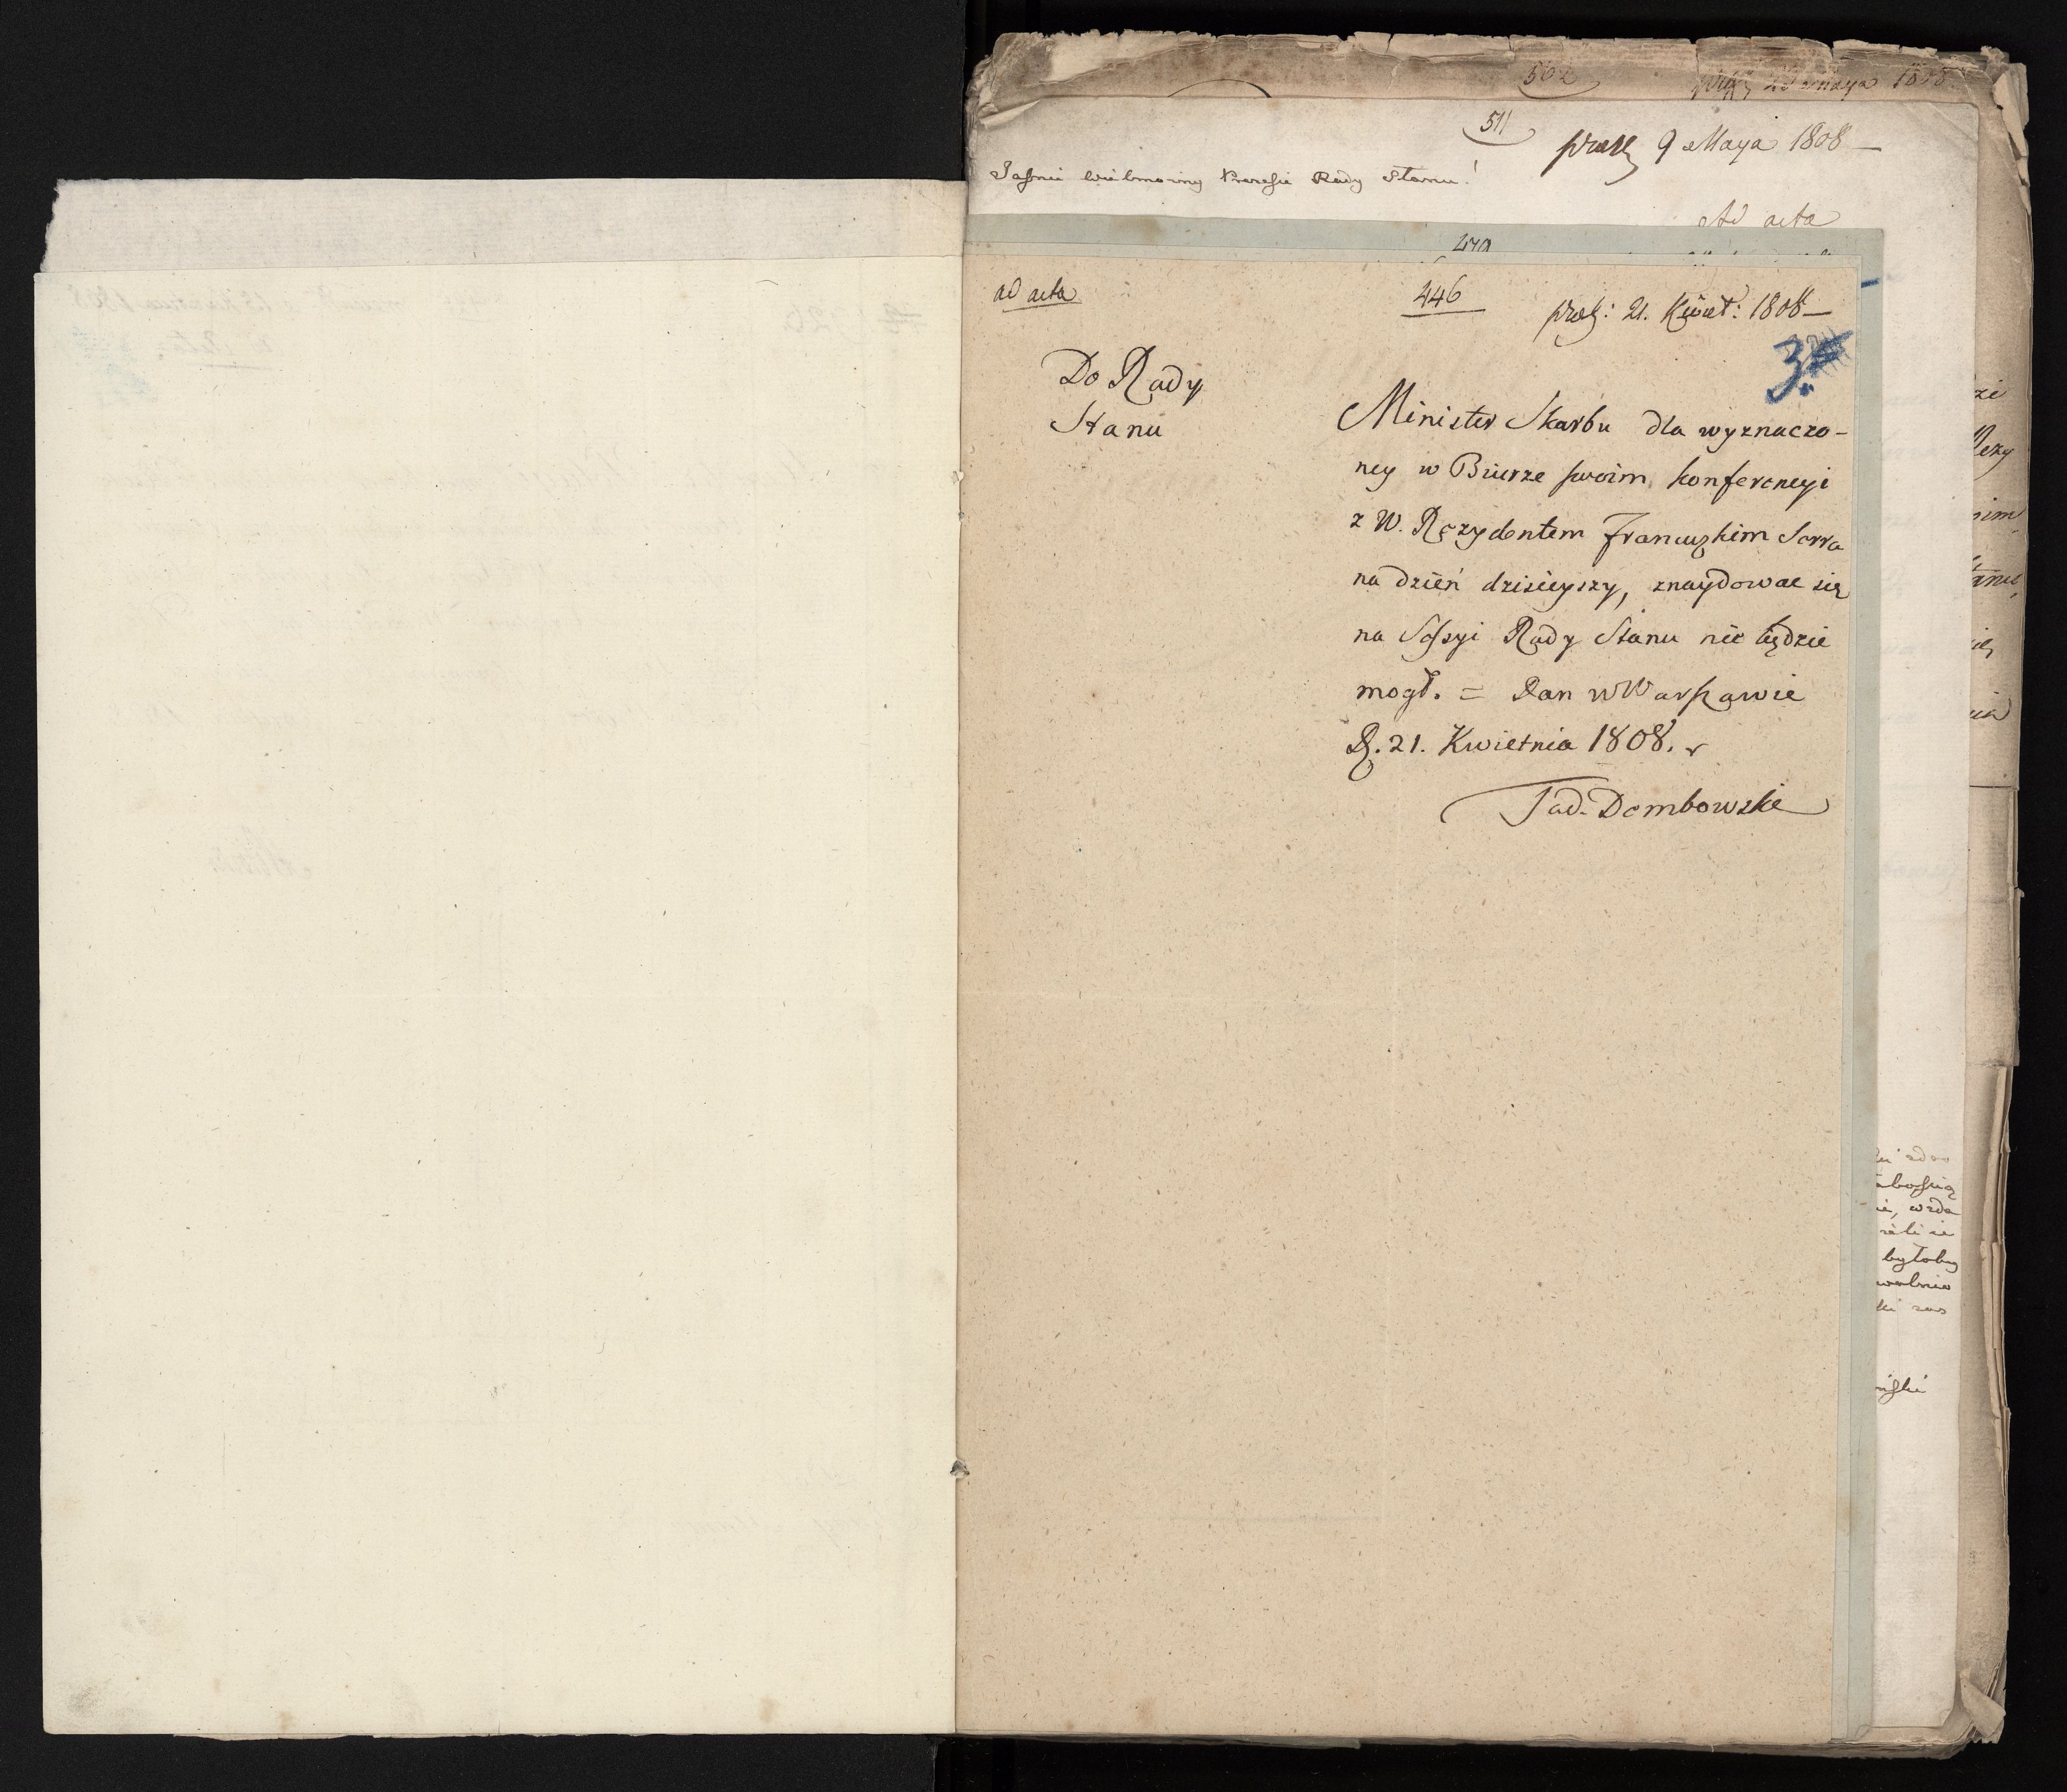 562
Maya 1808
511
9 Maya 1808 —
Rady Stanu!
Ad acta
ad acta
446
prez: 21. Kwiet: 1808 —
3.
Do Rady
Stanu
Minister Skarbu dla wyznaczo-
ney w Biurze swoim konferencyi
z W. Rezydentem Francuzkim Serra
na dzień dzisieyszy, znaydować się
na Sessyi Rady Stanu nie będzie
mogł. = Dan w Warszawie
D. 21. Kwietnia 1808. r
Tad. Dembowski
byłoby